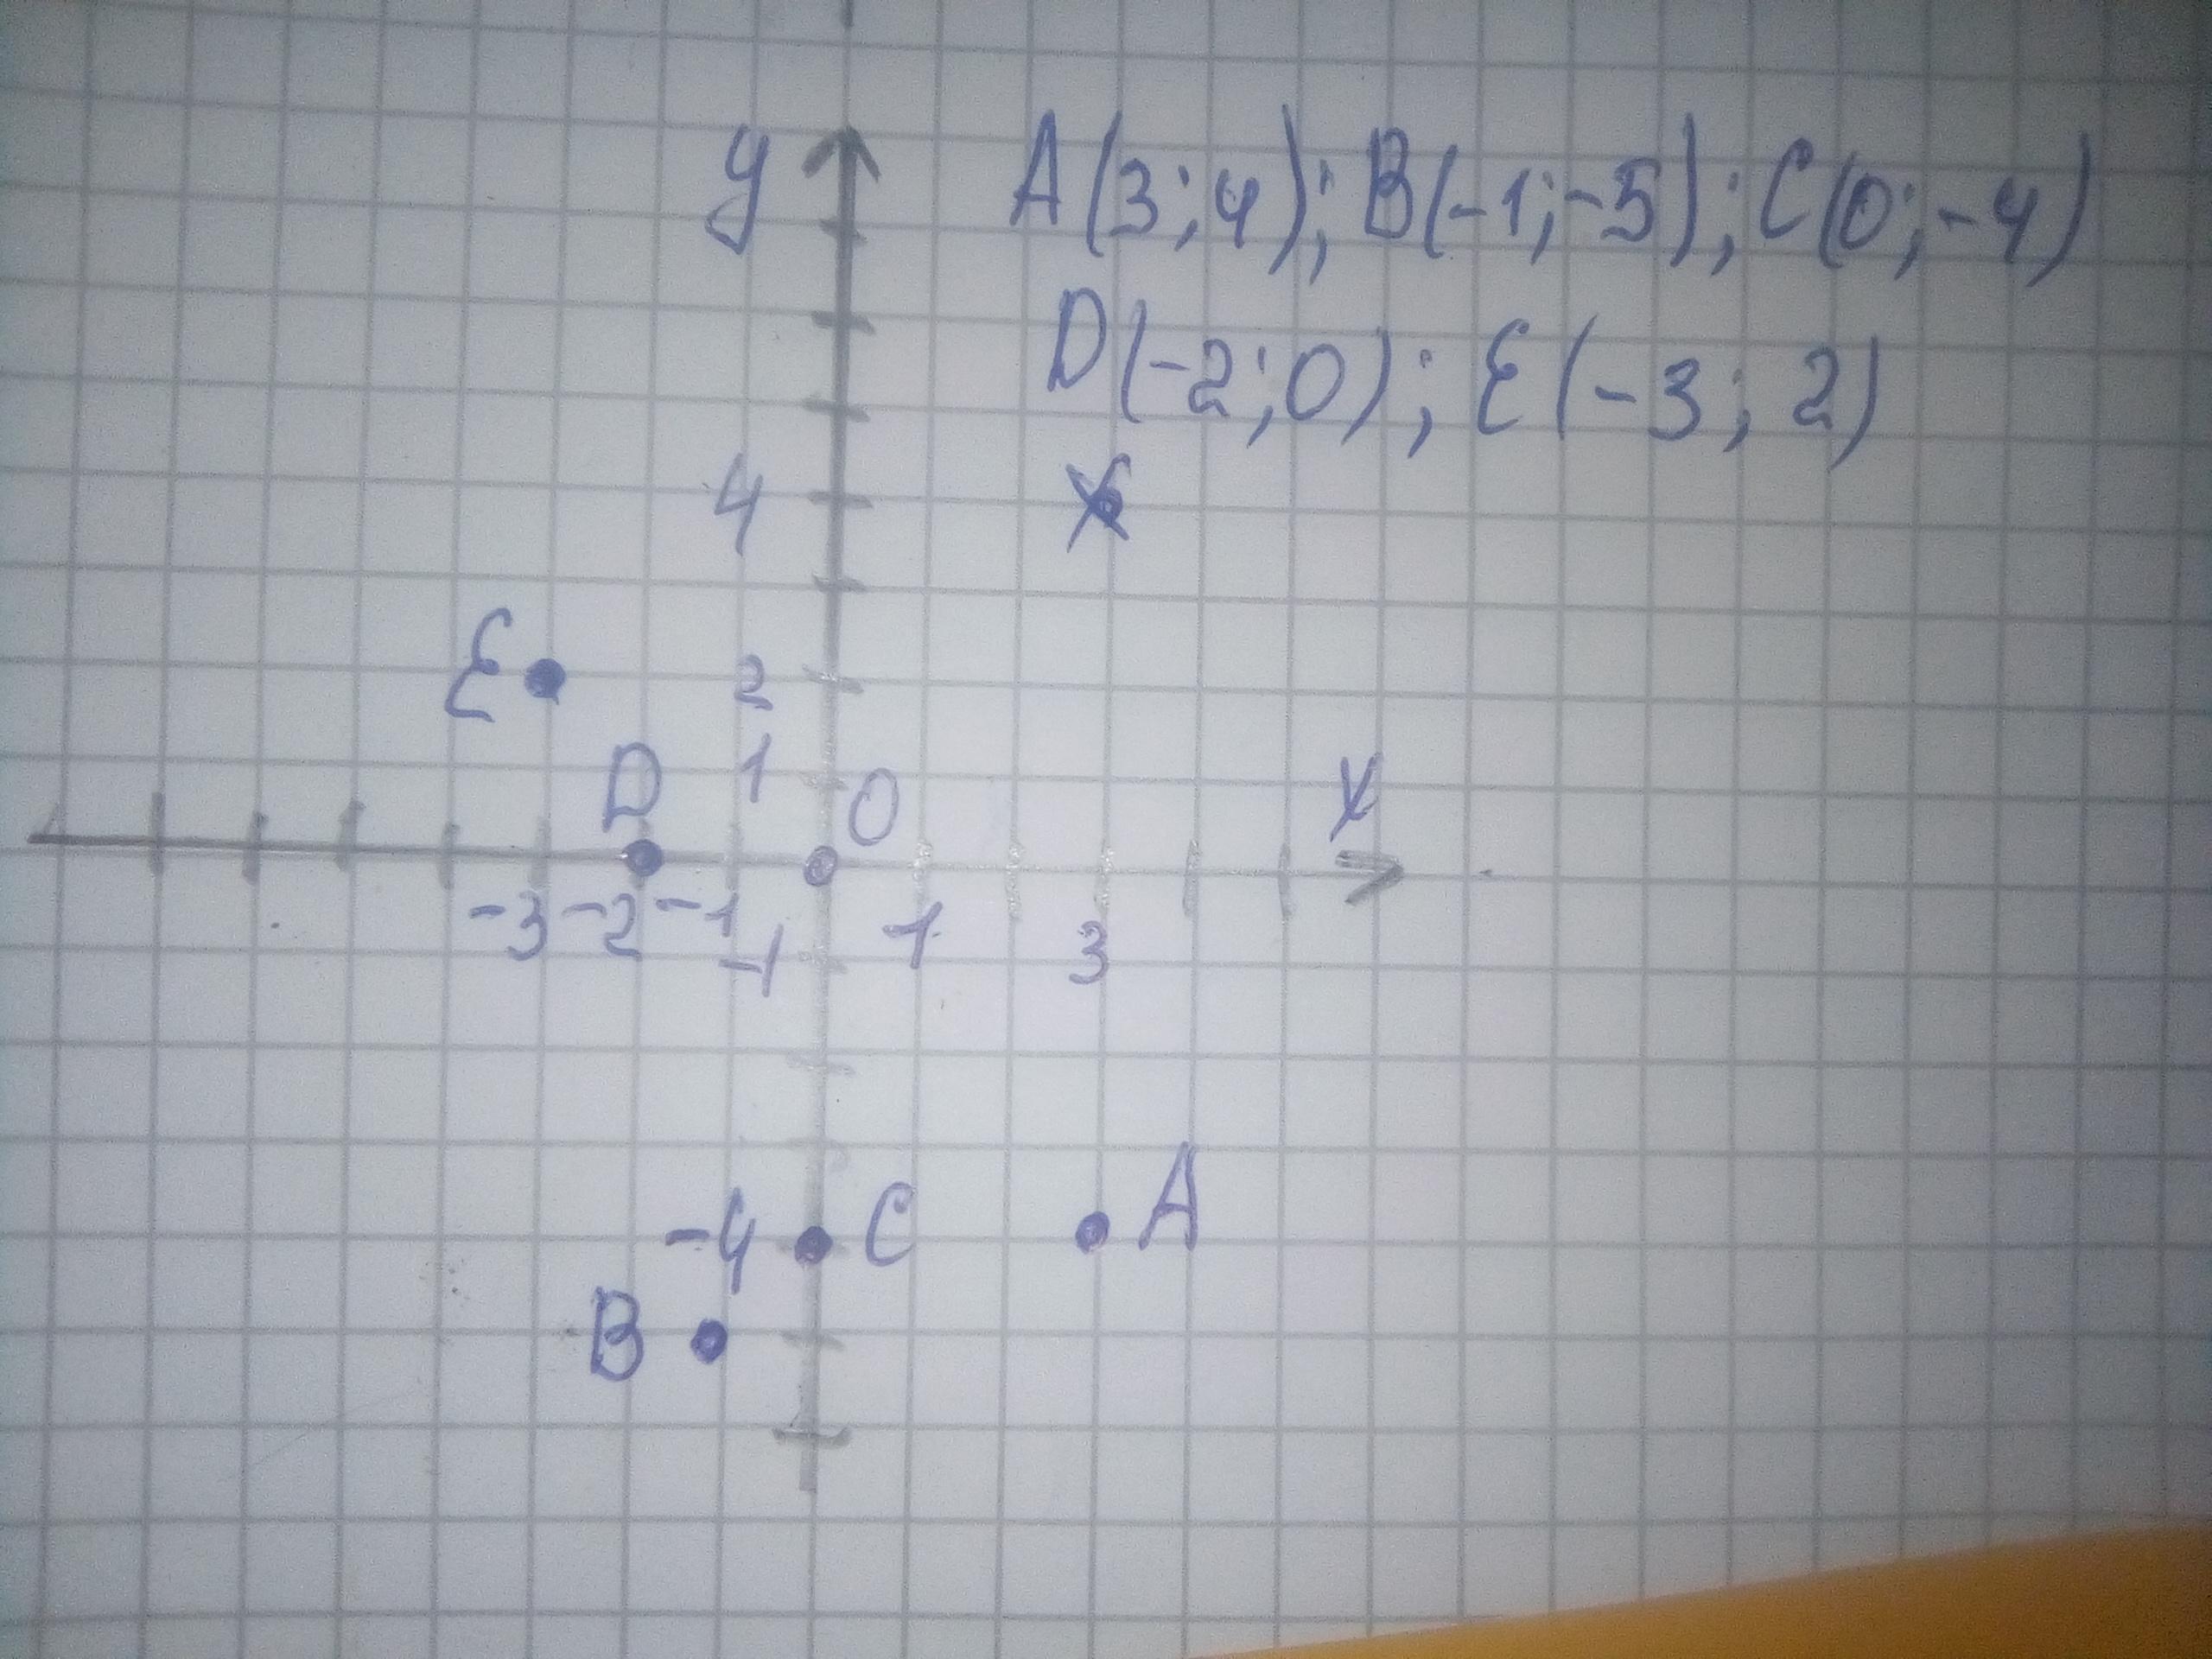 y
A(3;4); B(-1;-5); C(0;-4)
D(-2;0); E(-3; 2)
4
E
2
D
1
0
x
-3 -2 -1
1
3
-1
A
-4
C
B